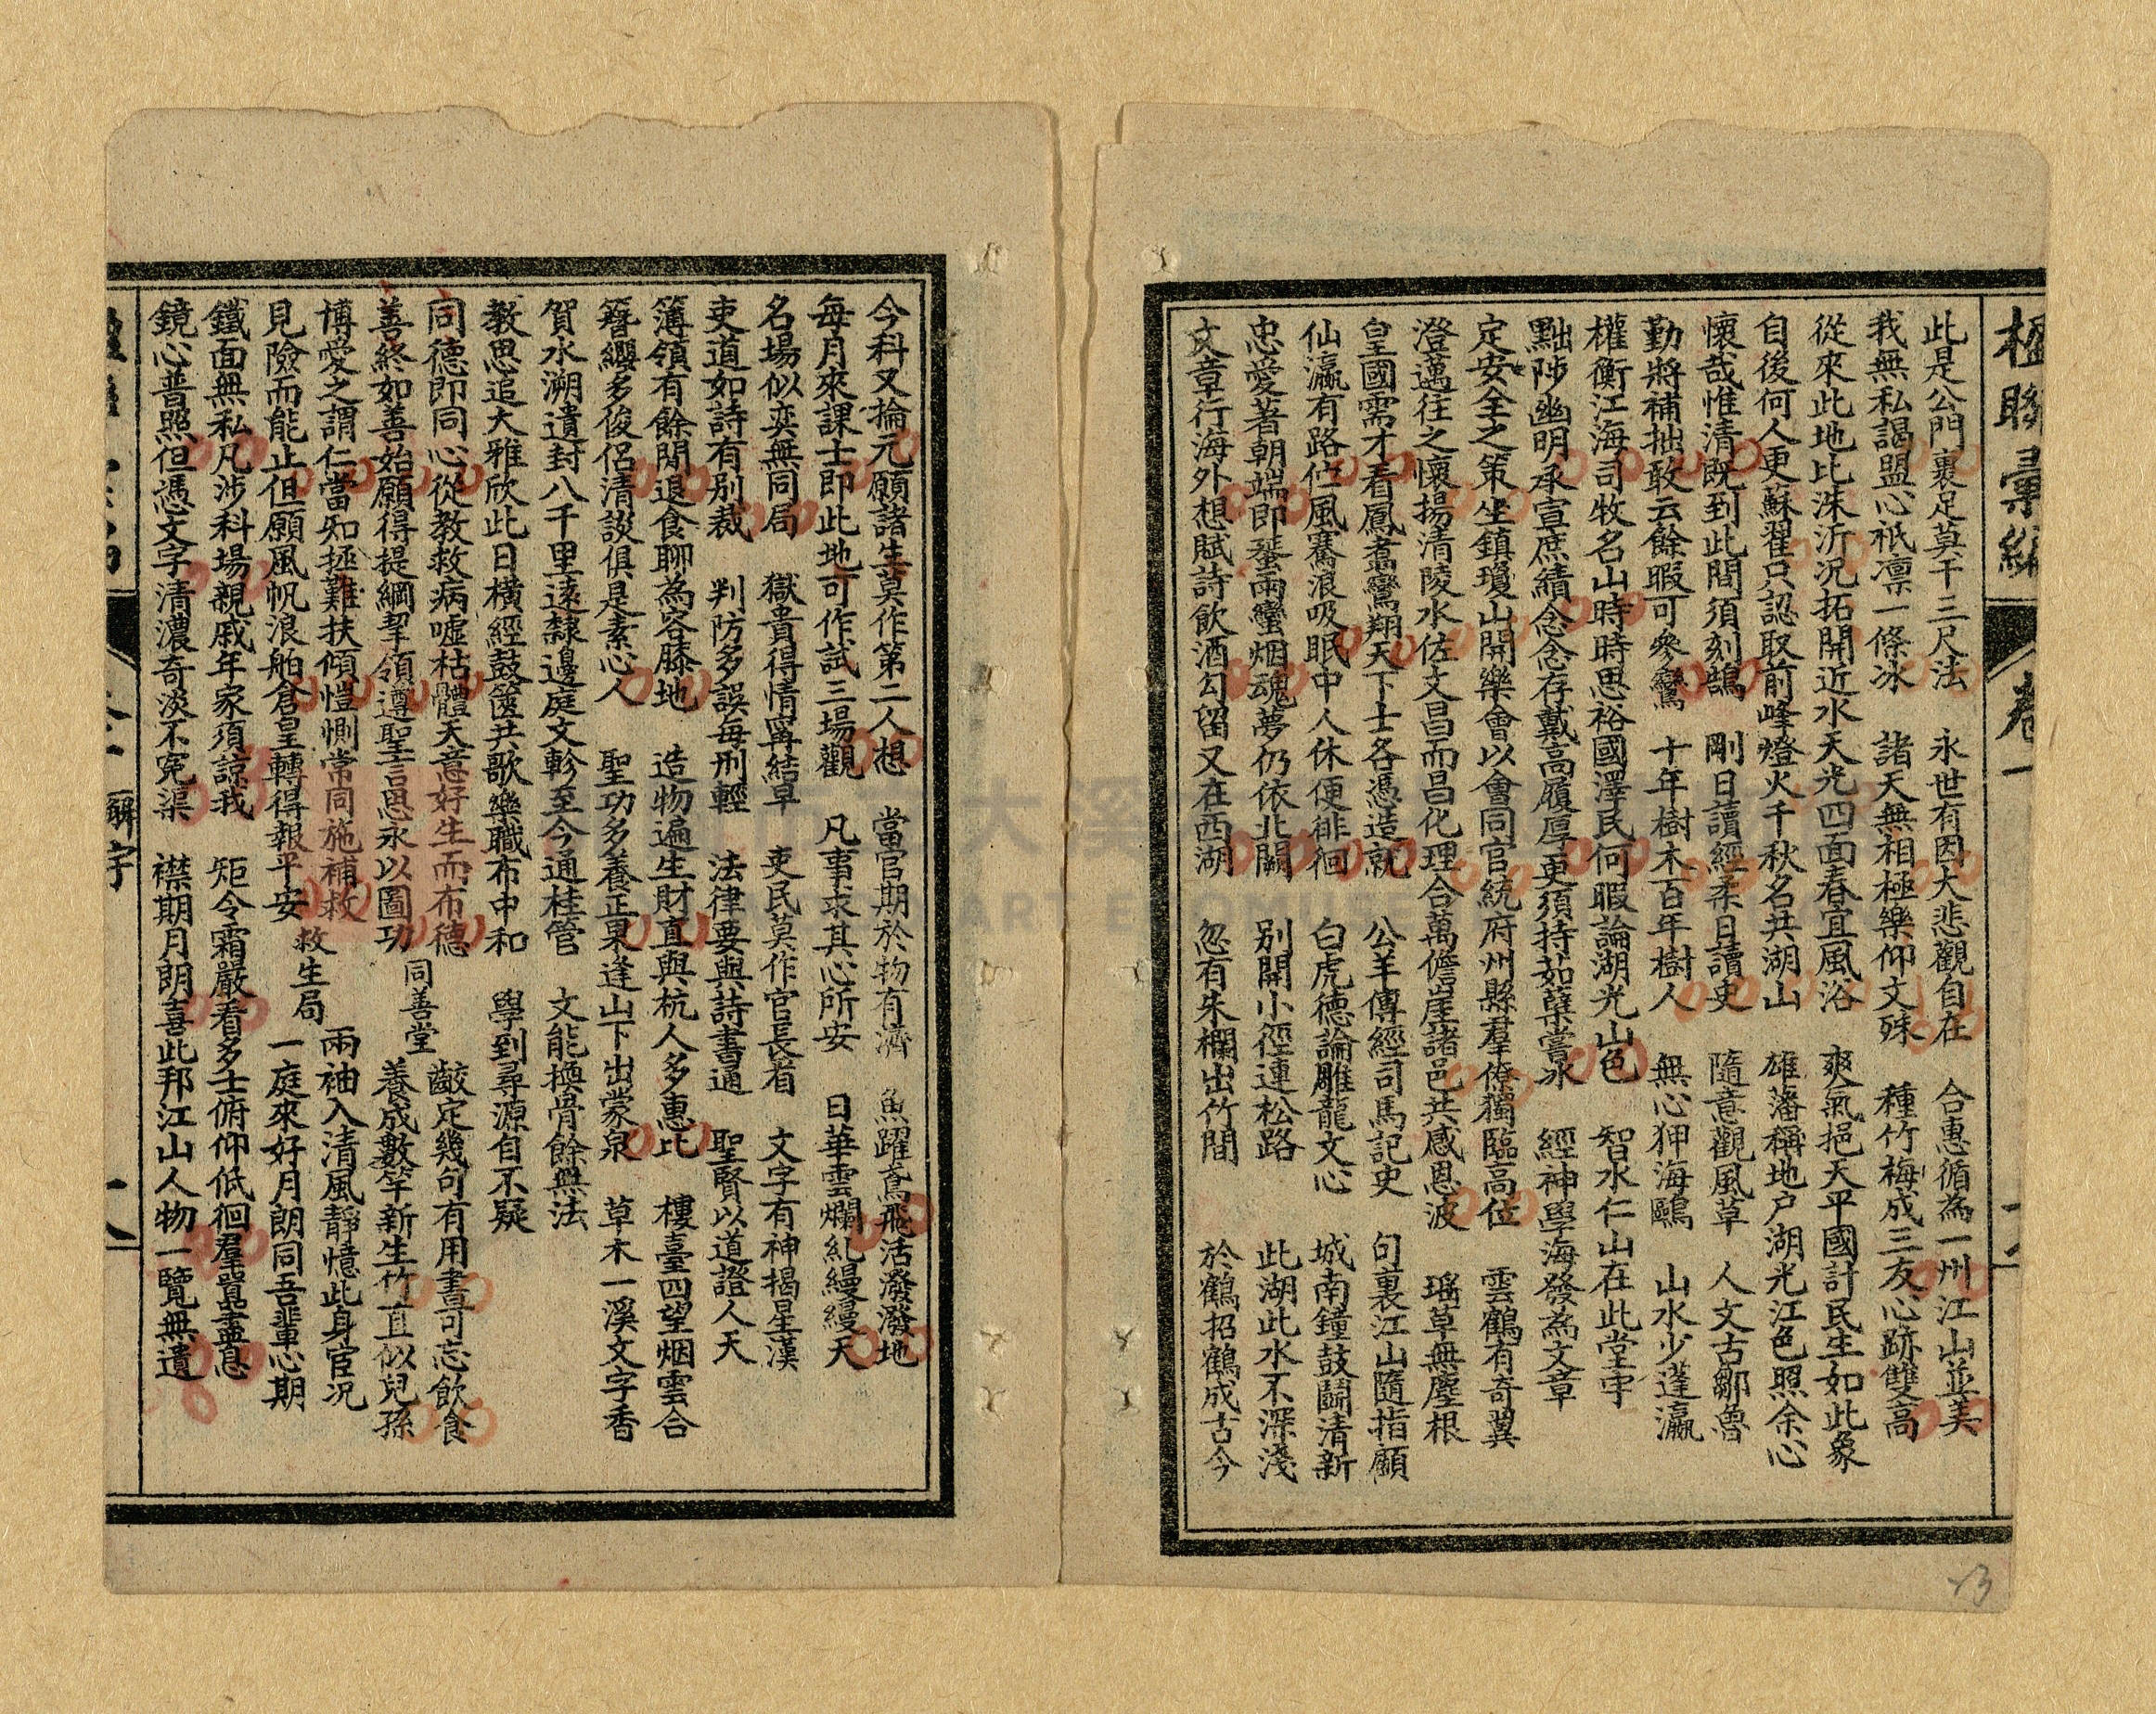 楹聯彙編 卷一
此是公門裏足莫干三尺法 永世有因大悲觀自在 合惠循為一州江山並美
我無私謁盟心祇凛一條冰 諸天無相極樂仰文殊 種竹梅成三友心跡雙高
從來此地比洙沂况拓開近水天光四面春宜風浴 爽氣挹天平國計民生如此象
自後何人更蘇翟只認取前峰燈火千秋名共湖山 雄藩稱地户湖光江色照余心
懷哉惟清既到此間須刻鵠 剛日讀經柔日讀史 隨意觀風草 人文古鄒魯
勤將補拙敢云餘暇可參鸞 十年樹木百年樹人 無心狎海鷗 山水少蓬瀛
權衡江海司牧名山時時思裕國澤民何暇論湖光山色 智水仁山在此堂宇
黜陟幽明承宣庶績念念存戴高履厚更須持茹蘗嘗冰 經神學海發為文章
定安全之策坐鎮瓊山開樂會以會同官統府州縣羣僚獨臨高位 雲鶴有奇翼
澄邁往之懷揚清陵水佐文昌而昌化理合萬儋崖諸邑共感恩波 瑶草無塵根
皇國需才看鳳翥鸞翔天下士各憑造就 公羊傳經司馬記史 句裏江山隨指顧
仙瀛有路伫風騫浪吸眠中人休便徘徊 白虎德論雕龍文心 城南鐘鼓鬬清新
忠愛著朝端即蜑雨蠻烟魂夢仍依北闕 别開小徑連松路 此湖此水不深淺
文章行海外想賦詩飲酒勾留又在西湖 忽有朱欄出竹間 於鶴招鶴成古今
今科又掄元願諸生莫作第二人想 當官期於物有濟 魚躍鳶飛活潑潑地
每月來課士即此地可作試三場觀 凡事求其心所安 日華雲爛糺縵縵天
名場似奕無同局 獄貴得情寧結早 吏民莫作官長看 文字有神揭星漢
吏道如詩有别裁 判防多誤每刑輕 法律要與詩書通 聖賢以道證人天
簿領有餘閒退食聊為容膝地 造物遍生財直與杭人多惠比 樓臺四望烟雲合
簪纓多俊侣清談俱是素心人 聖功多養正果逢山下出蒙泉 草木一溪文字香
賀水溯遺封八千里遠隸邊庭文軫至今通桂管 文能換骨餘無法
教思追大雅欣此日橫經鼓篋共歌樂職布中和 學到尋源自不疑
同德即同心從教救病噓枯體天意好生而布德 同善堂 鼗定幾句有用書可忘飲食
善終如善始願得提綱挈領遵聖言恩永以圖功 養成數竿新生竹直似兒孫
博愛之謂仁當知拯難扶傾愷惻常同施補救 救生局 兩袖入清風靜憶此身宦况
見險而能止但願風帆浪舶倉皇轉得報平安 一庭來好月朗同吾輩心期
鐵面無私凡涉科場親戚年家須諒我 矩令霜嚴看多士俯仰低徊羣囂盡息
鏡心普照但憑文字清濃奇淡不寃渠 襟期月朗喜此邦江山人物一覽無遺
廨宇
23